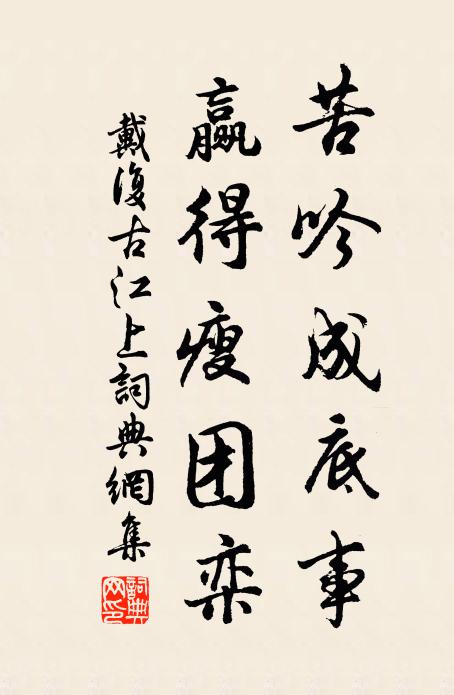 苦吟成底事
赢得瘦团栾
戴復古江上詞典網集
詞典网印